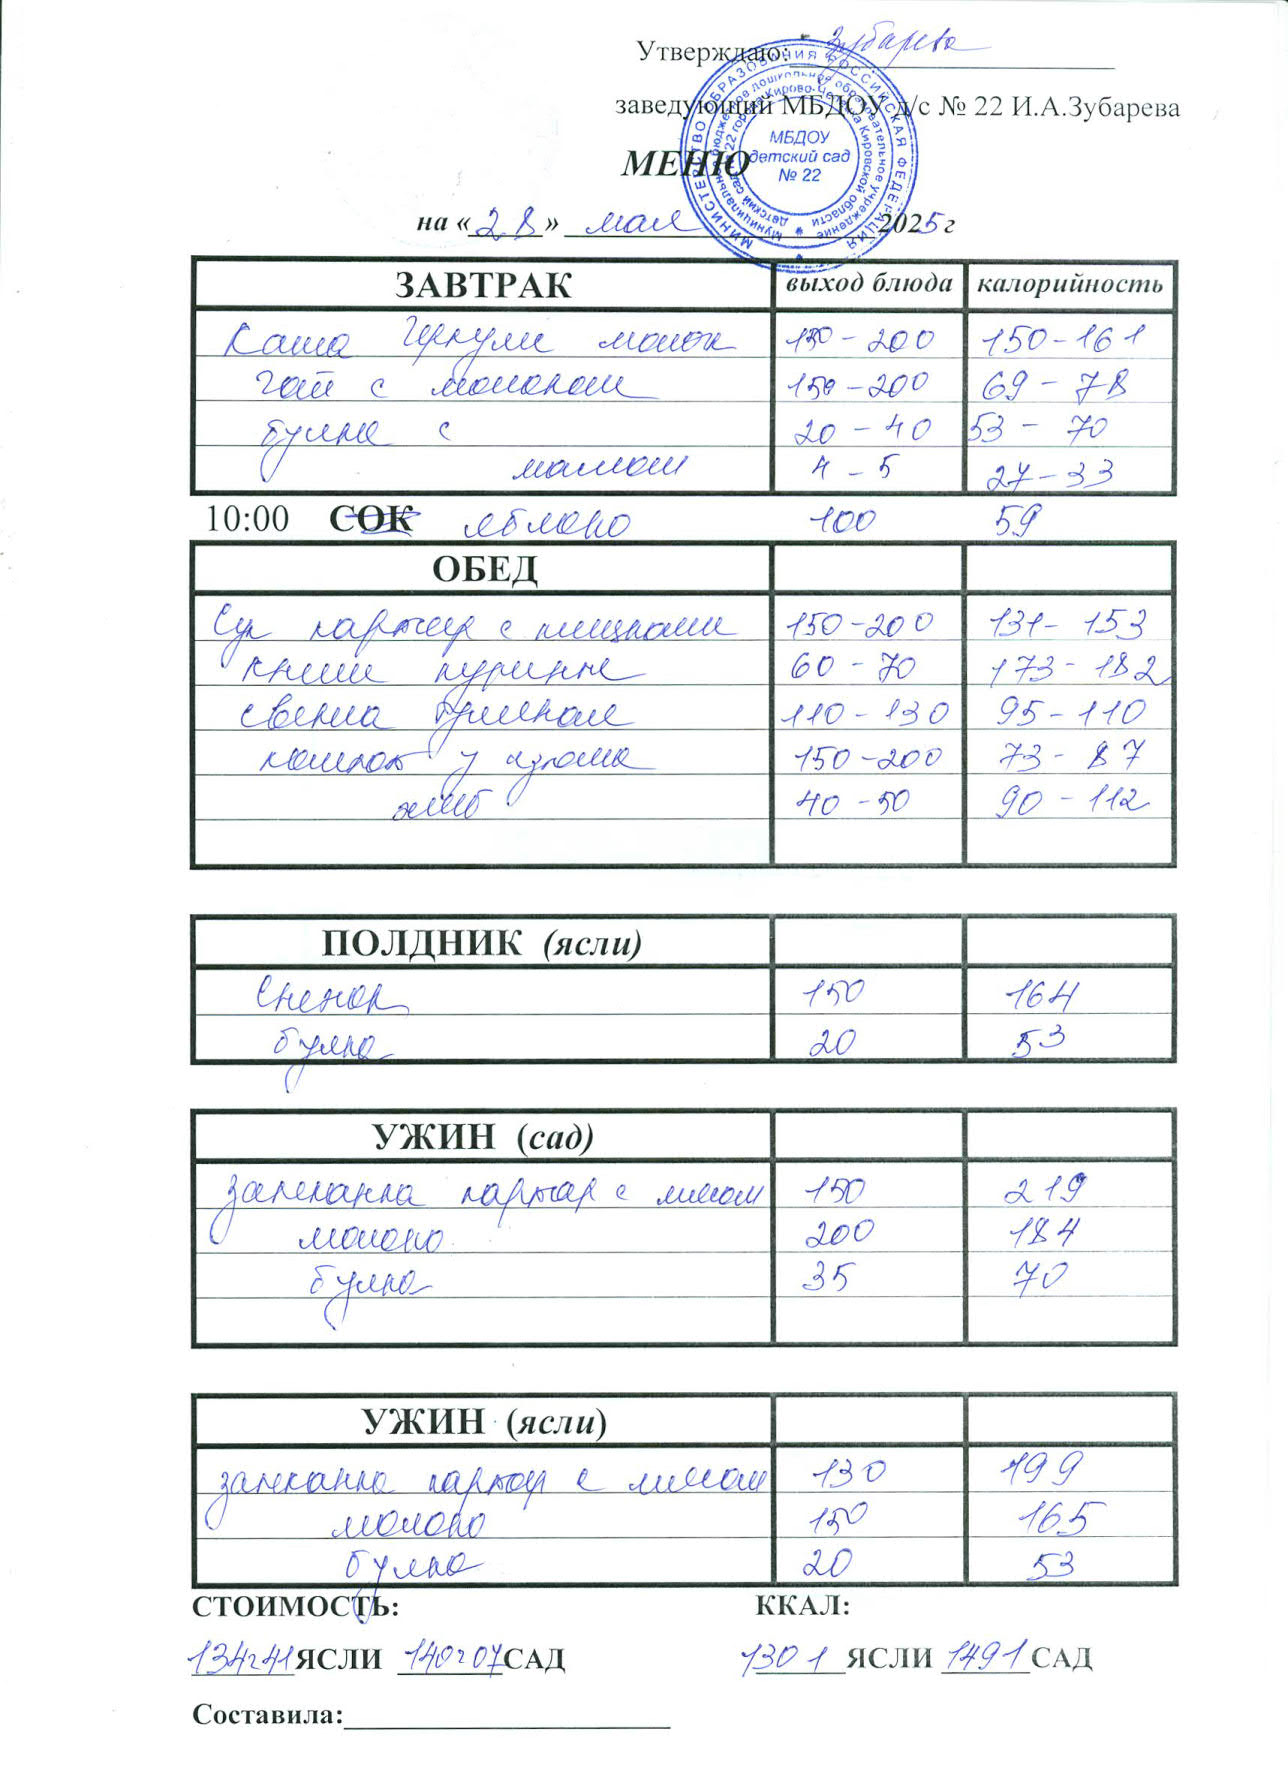 Утверждаю: Зубарева
заведующий МБДОУ д/с № 22 И.А.Зубарева
МИНИСТЕРСТВО ОБРАЗОВАНИЯ РОССИЙСКАЯ ФЕДЕРАЦИЯ
МБДОУ
детский сад
№ 22
МЕНЮ
на «28» мая 2025 г
ЗАВТРАК выход блюда калорийность
Каша Геркулес молоч 150-200 150-161
чай с молоком 150-200 69-78
булка с 20-40 53-70
маслом 4-5 27-33
10:00 СОК яблоко 100 59
ОБЕД
Суп картоф с клецками 150-200 131-153
кнели куриные 60-70 173-182
свекла тушеная 110-130 95-110
компот 150-200 73-87
хлеб 40-50 90-112
ПОЛДНИК (ясли)
Снежок 150 164
булка 20 53
УЖИН (сад)
запеканка картоф с мясом 150 219
молоко 200 184
булка 35 70
УЖИН (ясли)
запеканка картоф с мясом 130 199
молоко 150 165
булка 20 53
СТОИМОСТЬ: ККАЛ:
134=41 ЯСЛИ 140=07 САД 1301 ЯСЛИ 1491 САД
Составила: